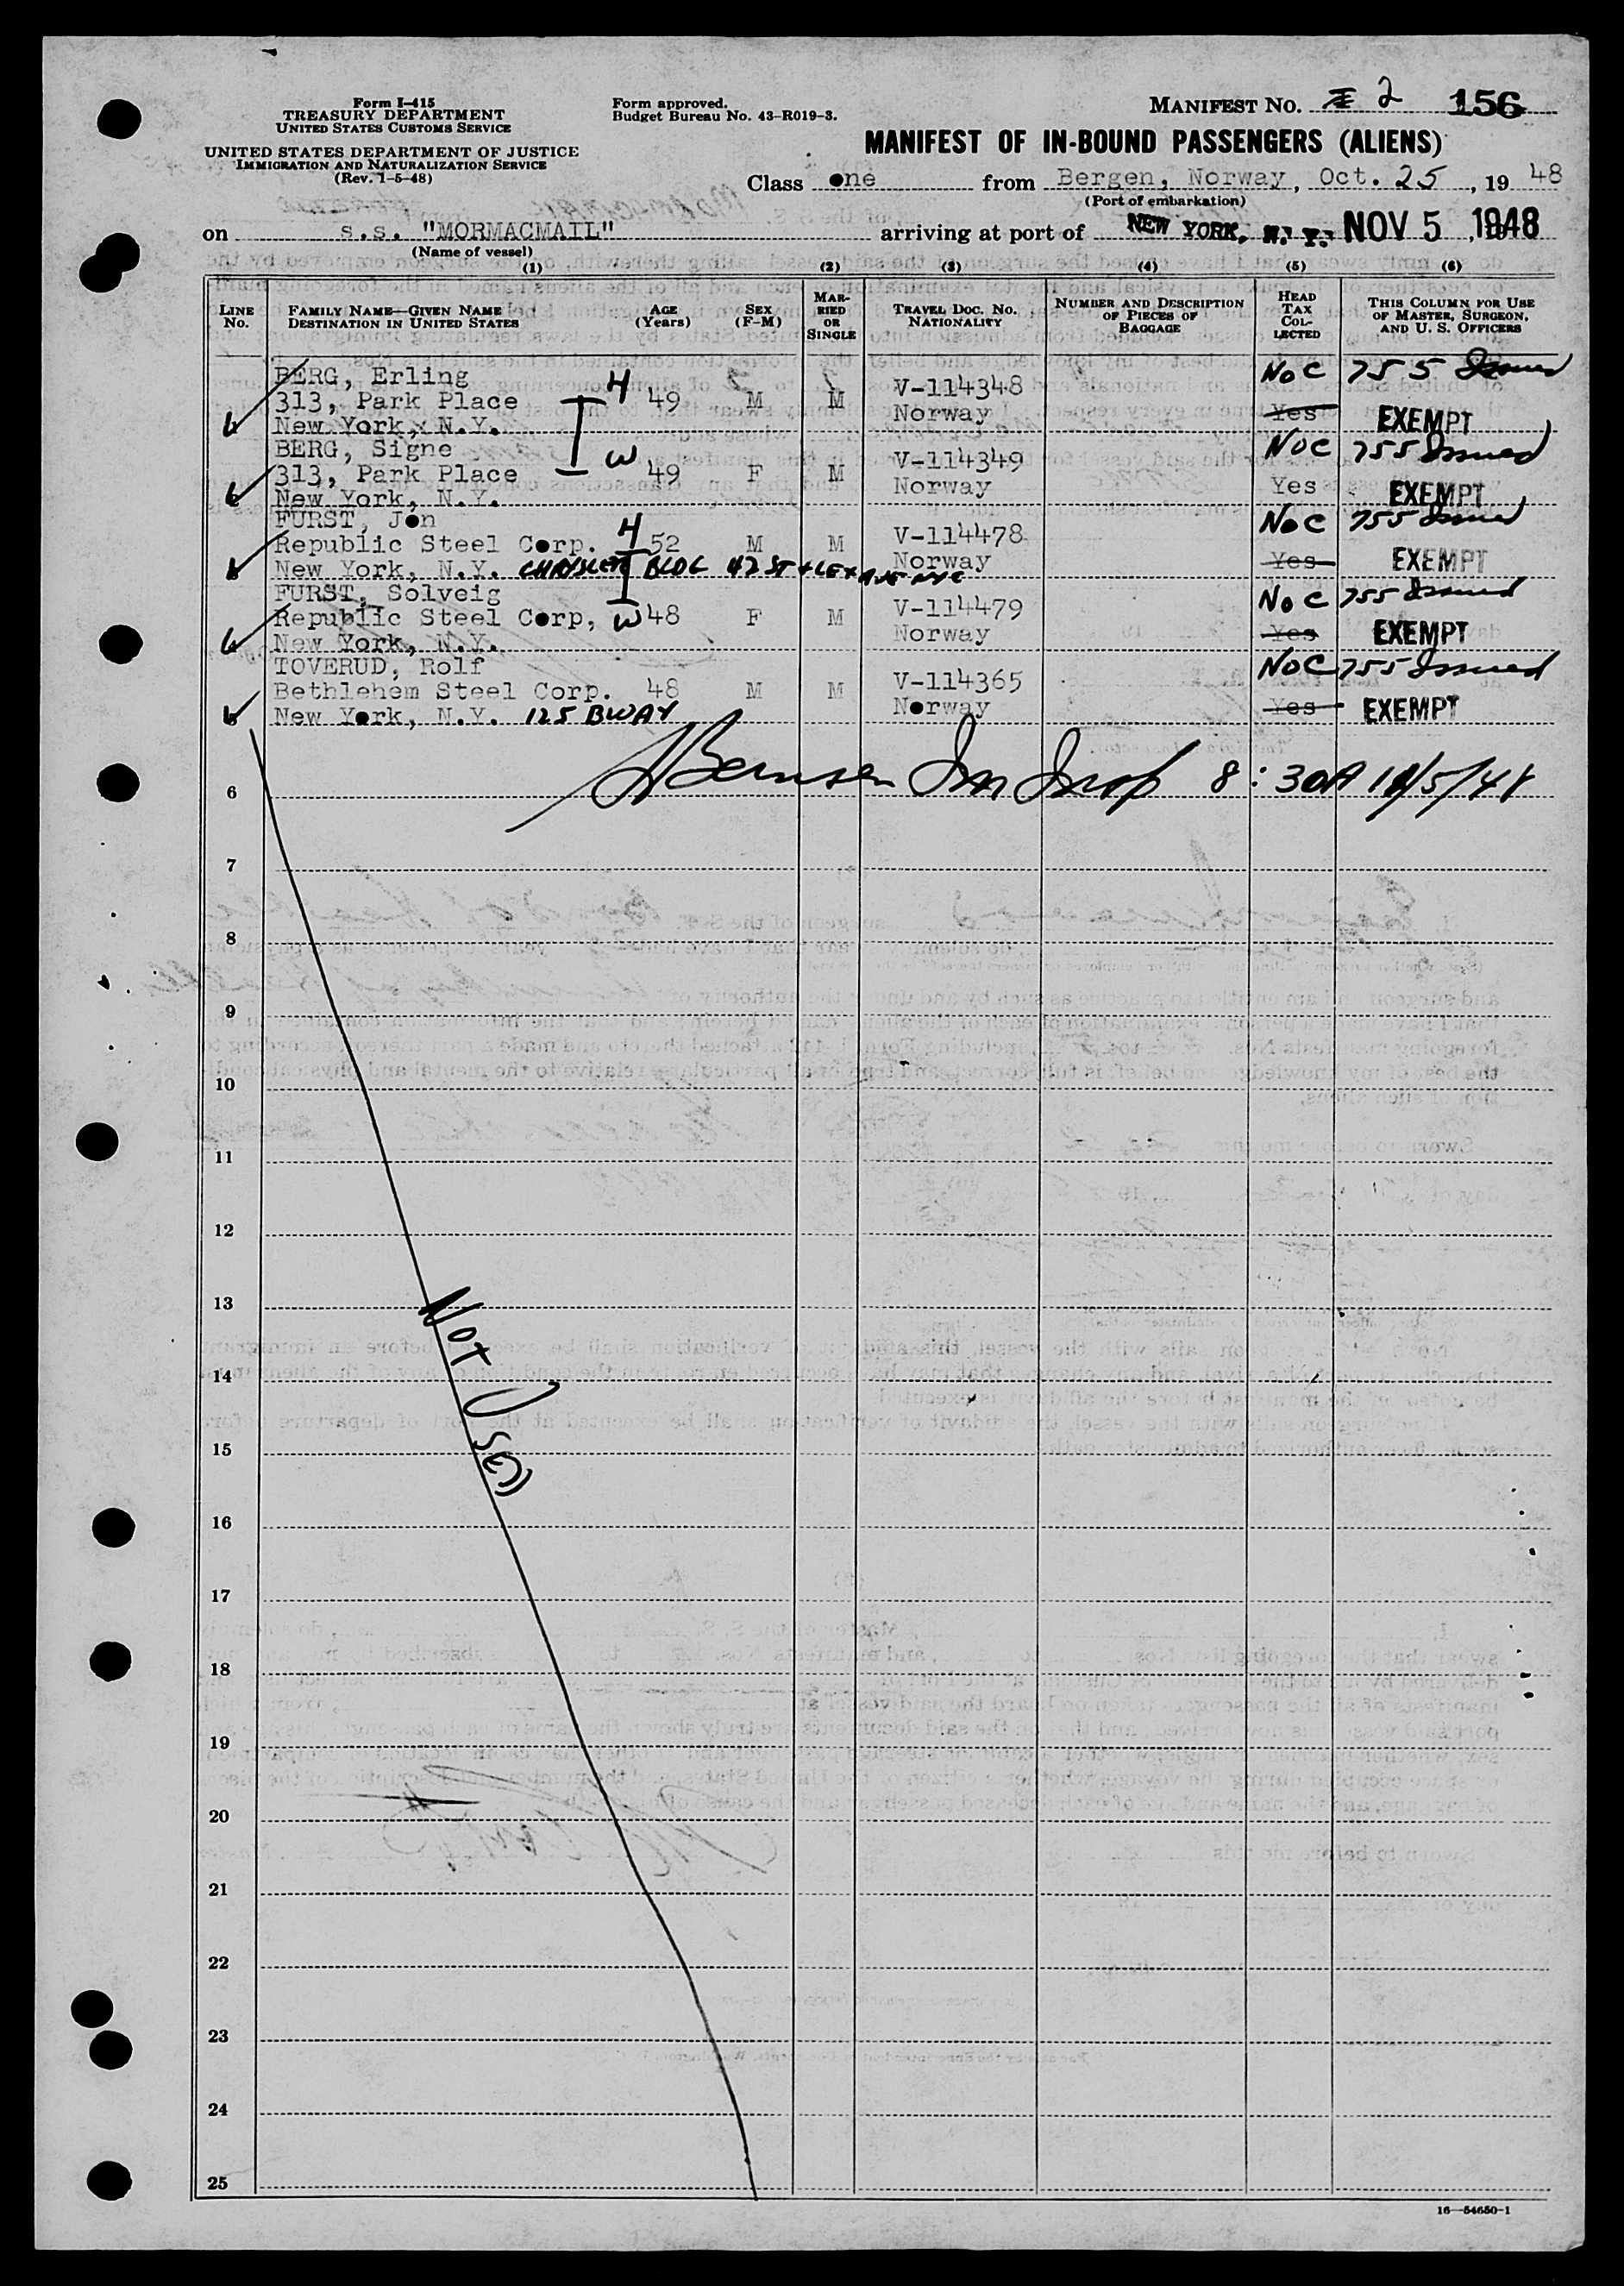 Form I-415
TREASURY DEPARTMENT
UNITED STATES CUSTOMS SERVICE
UNITED STATES DEPARTMENT OF JUSTICE
IMMIGRATION AND NATURALIZATION SERVICE
(Rev. 1-5-48)
Form approved.
Budget Bureau No. 43-R019-3.
MANIFEST No. 2 156
MANIFEST OF IN-BOUND PASSENGERS (ALIENS)
Class one from Bergen, Norway, Oct. 25, 19 48
(Port of embarkation)
on s.s. "MORMACMAIL" arriving at port of NEW YORK, N. Y. NOV 5, 1948
(Name of vessel)
(1) (2) (3) (4) (5) (6)
LINE No. FAMILY NAME—GIVEN NAME DESTINATION IN UNITED STATES AGE (Years) SEX (F-M) MARRIED OR SINGLE TRAVEL DOC. NO. NATIONALITY NUMBER AND DESCRIPTION OF PIECES OF BAGGAGE HEAD TAX COLLECTED THIS COLUMN FOR USE OF MASTER, SURGEON, AND U. S. OFFICERS
BERG, Erling H V-114348 NOC 755 Issued
313, Park Place 49 M M Norway Yes EXEMPT
New York, N.Y.
BERG, Signe W V-114349 NOC 755 Issued
313, Park Place 49 F M Norway Yes EXEMPT
New York, N.Y.
FURST, Jon H V-114478 NOC 755 Issued
Republic Steel Corp. 52 M M Norway Yes EXEMPT
New York, N.Y. CHRYSLER BLDG 42 ST + LEX AVE NYC
FURST, Solveig V-114479 NOC 755 Issued
Republic Steel Corp, W 48 F M Norway Yes EXEMPT
New York, N.Y.
TOVERUD, Rolf V-114365 NOC 755 Issued
Bethlehem Steel Corp. 48 M M Norway Yes EXEMPT
New York, N.Y. 125 BWAY
Im Insp 8:30A 11/5/48
6
7
8
9
10
11
12
13
NOT USED
14
15
16
17
18
19
20
21
22
23
24
25
16—54650-1